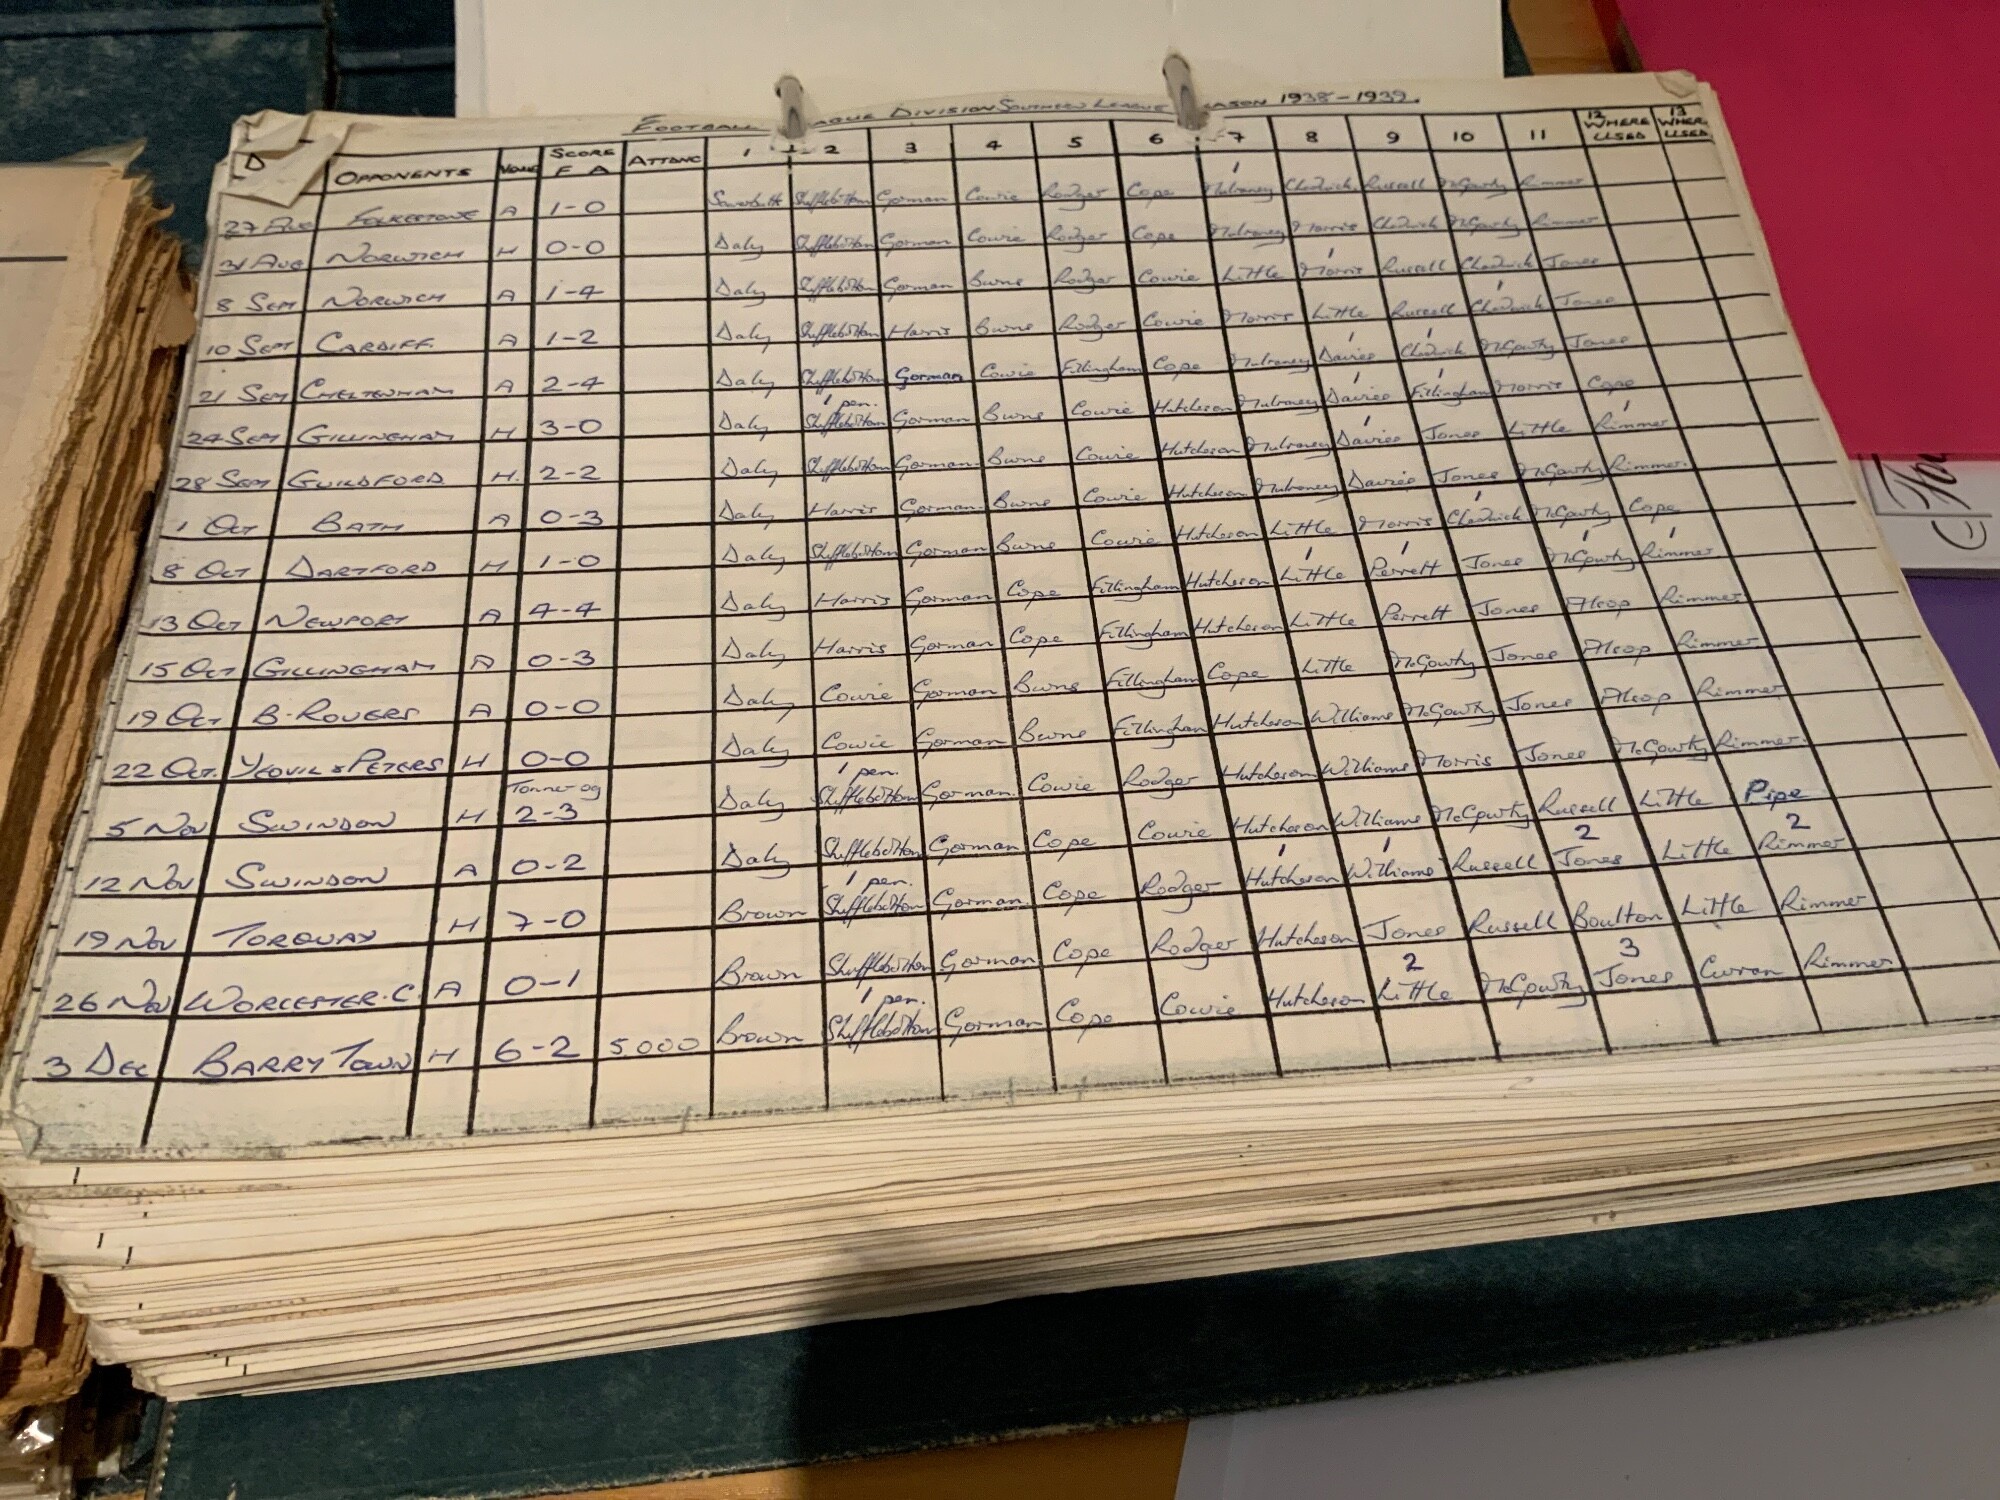 FOOTBALL LEAGUE DIVISION SOUTHERN LEAGUE SEASON 1938-1939.
D OPPONENTS VENUE SCORE F A ATTANC 1 2 3 4 5 6 7 8 9 10 11 12 WHERE USED 13 WHERE USED
1
27 Aug FOLKESTONE A 1-0 Sowerbutt Shufflebottom Gorman Cowie Rodger Cope Mulraney Chadwick Russell McGourty Rimmer
31 Aug NORWICH H 0-0 Daly Shufflebottom Gorman Cowie Rodger Cope Mulraney Morris Chadwick McGourty Rimmer
1
8 SEPT NORWICH A 1-4 Daly Shufflebottom Gorman Burns Rodger Cowie Little Morris Russell Chadwick Jones
1
10 SEPT CARDIFF A 1-2 Daly Shufflebottom Harris Burns Rodger Cowie Morris Little Russell Chadwick Jones
1 1
21 SEPT CHELTENHAM A 2-4 Daly Shufflebottom Gorman Cowie Fillingham Cope Mulraney Davies Chadwick McGourty Jones
1 pen. 1 1
24 SEPT GILLINGHAM H 3-0 Daly Shufflebottom Gorman Burns Cowie Hutcheson Mulraney Davies Fillingham Morris Cope
1 1
28 SEPT GUILDFORD H. 2-2 Daly Shufflebottom Gorman Burns Cowie Hutcheson Mulraney Davies Jones Little Rimmer
1 OCT BATH A 0-3 Daly Harris Gorman Burns Cowie Hutcheson Mulraney Davies Jones McGourty Rimmer.
1
8 OCT DARTFORD H 1-0 Daly Shufflebottom Gorman Burns Cowie Hutcheson Little Morris Chadwick McGourty Cope
1 1 1 1
13 OCT NEWPORT A 4-4 Daly Harris Gorman Cope Fillingham Hutcheson Little Perrett Jones McGourty Rimmer
15 OCT GILLINGHAM A 0-3 Daly Harris Gorman Cope Fillingham Hutcheson Little Perrett Jones Alsop Rimmer
19 OCT B. ROVERS A 0-0 Daly Cowie Gorman Burns Fillingham Cope Little McGourty Jones Alsop Rimmer
22 OCT. YEOVIL & PETERS H 0-0 Daly Cowie Gorman Burns Fillingham Hutcheson Williams McGourty Jones Alsop Rimmer
Tonner og 1 pen.
5 NOV SWINDON H 2-3 Daly Shufflebottom Gorman Cowie Rodger Hutcheson Williams Morris Jones McGourty Rimmer.
12 NOV SWINDON A 0-2 Daly Shufflebottom Gorman Cope Cowie Hutcheson Williams McGourty Russell Little Pipe
1 pen. 1 1 2 2
19 NOV TORQUAY H 7-0 Brown Shufflebottom Gorman Cope Rodger Hutcheson Williams Russell Jones Little Rimmer
26 NOV WORCESTER. C. A 0-1 Brown Shufflebottom Gorman Cope Rodger Hutcheson Jones Russell Boulton Little Rimmer
1 pen. 2 3
3 DEC BARRY TOWN H 6-2 5000 Brown Shufflebottom Gorman Cope Cowie Hutcheson Little McGourty Jones Curran Rimmer